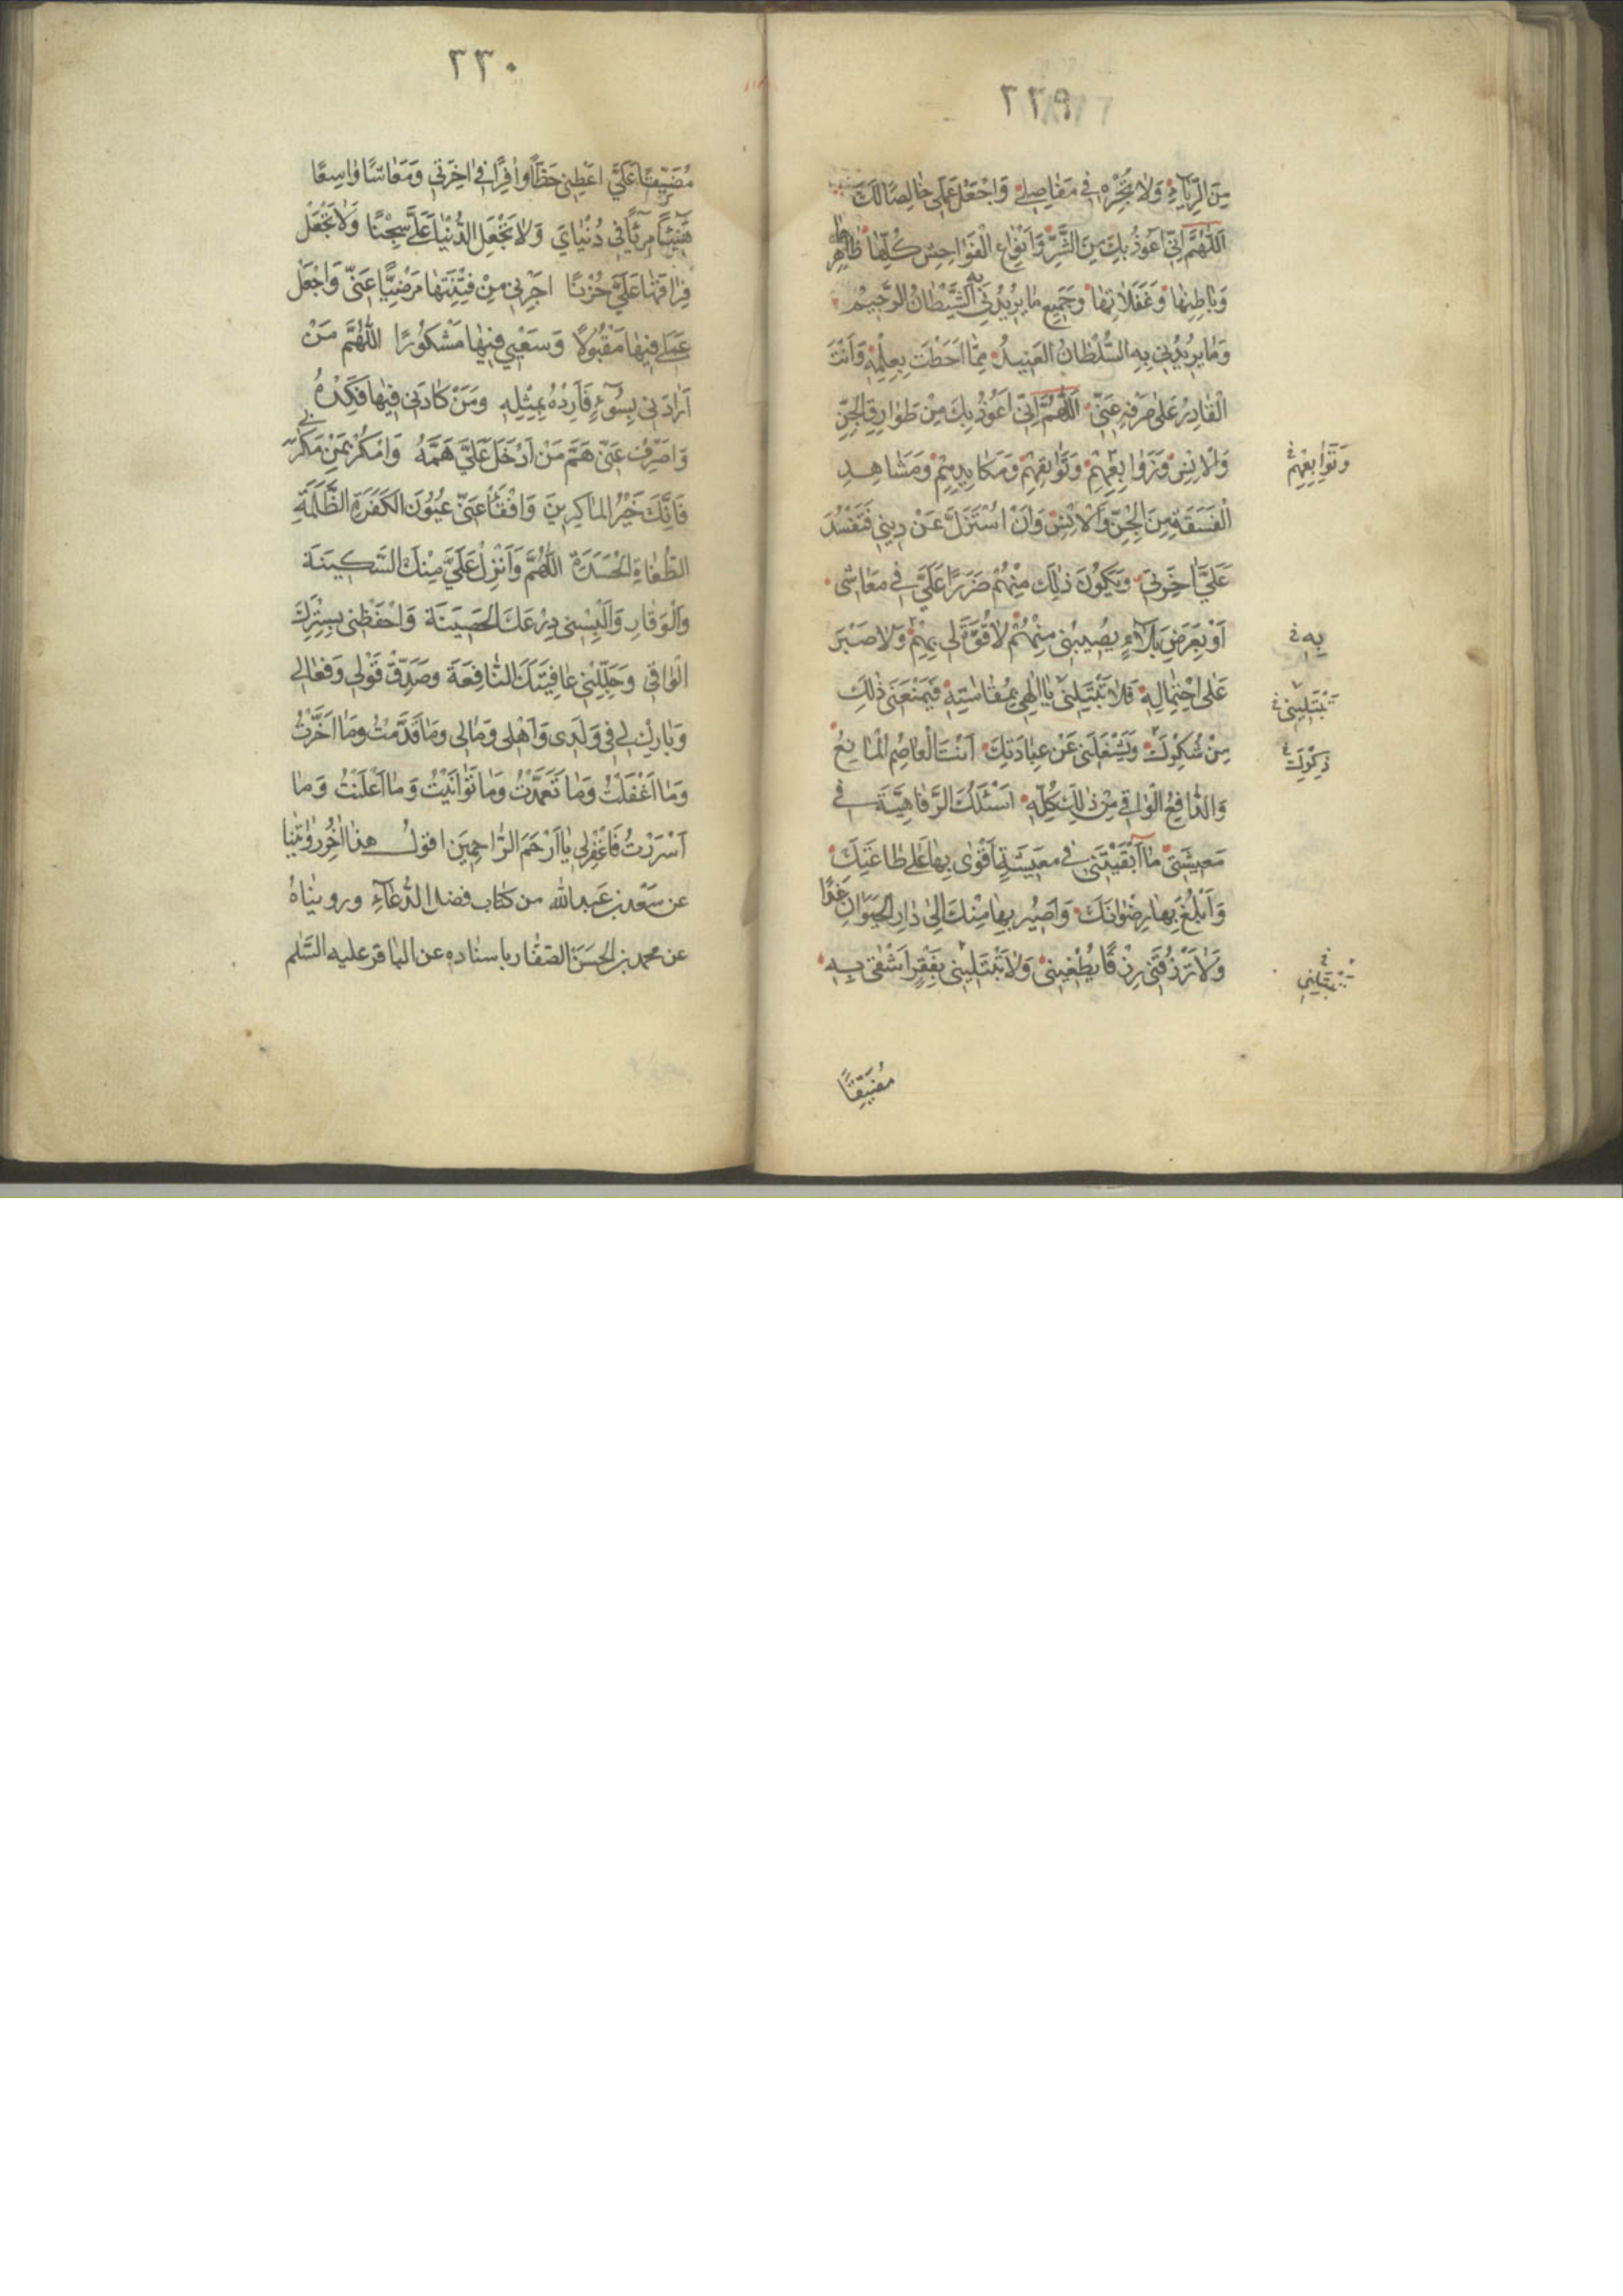 ٢٢٩
مِنَ الرِّيَاءِ وَلَا تُجْرِهِ فِي مَفَاصِلِي وَاجْعَلْ عَمَلِي خَالِصًا لَكَ
اَللّٰهُمَّ اِنِّي اَعُوذُ بِكَ مِنَ الشَّرِّ وَاَنْوَاعِ الْفَوَاحِشِ كُلِّهَا ظَاهِرِهَا
وَبَاطِنِهَا وَغَفَلَاتِهَا وَجَمِيعِ مَا يُرِيدُنِي بِهِ الشَّيْطَانُ الرَّجِيمُ
وَمَا يُرِيدُنِي بِهِ السُّلْطَانُ الْعَنِيدُ مِمَّا اَحَطْتَ بِعِلْمِهِ وَاَنْتَ
الْقَادِرُ عَلَى صَرْفِهِ عَنِّي اَللّٰهُمَّ اِنِّي اَعُوذُ بِكَ مِنْ طَوَارِقِ الْجِنِّ
وَالْاِنْسِ وَزَوَابِعِهِمْ وَبَوَائِقِهِمْ وَمَكَايِدِهِمْ وَمَشَاهِدِ
وَتَوَابِعِهِمْ
الْفَسَقَةِ مِنَ الْجِنِّ وَالْاِنْسِ وَاَنْ اُسْتَزَلَّ عَنْ دِينِي فَتَفْسُدَ
عَلَيَّ اٰخِرَتِي وَيَكُونَ ذٰلِكَ مِنْهُمْ ضَرَرًا عَلَيَّ فِي مَعَاشِي
اَوْ بِعَرَضِ بَلَاءٍ يُصِيبُنِي مِنْهُمْ لَا قُوَّةَ لِي بِهِمْ وَلَا صَبْرَ
بِهِ
عَلَى احْتِمَالِهِ فَلَا تَبْتَلِيَنِّي يَا اِلٰهِي بِمُقَاسَاتِهِ فَيَمْنَعَنِي ذٰلِكَ
تَبْتَلِيَنِي
مِنْ شُكْرِكَ وَيَشْغَلَنِي عَنْ عِبَادَتِكَ اَنْتَ الْعَاصِمُ الْمَانِعُ
ذِكْرِكَ
وَالدَّافِعُ الْوَاقِي مِنْ ذٰلِكَ كُلِّهِ اَسْئَلُكَ الرَّفَاهِيَةَ فِي
مَعِيشَتِي مَا اَبْقَيْتَنِي فِي مَعِيشَةٍ اَقْوٰى بِهَا عَلَى طَاعَتِكَ
وَاَبْلُغُ بِهَا رِضْوَانَكَ وَاَصِيرُ بِهَا مِنْكَ اِلٰى دَارِ الْحَيَوَانِ غَدًا
وَلَا تَرْزُقْنِي رِزْقًا يُطْغِينِي وَلَا تَبْتَلِيَنِي بِفَقْرٍ اَشْقٰى بِهِ
مُضَيِّقًا
٢٣٠
مُضَيِّقًا عَلَيَّ اَعْطِنِي حَظًّا وَافِرًا فِي اٰخِرَتِي وَمَعَاشًا وَاسِعًا
هَنِيئًا مَرِيئًا فِي دُنْيَايَ وَلَا تَجْعَلِ الدُّنْيَا عَلَيَّ سِجْنًا وَلَا تَجْعَلْ
فِرَاقَهَا عَلَيَّ حُزْنًا اَجِرْنِي مِنْ فِتْنَتِهَا مَرْضِيًّا عَنِّي وَاجْعَلْ
عَمَلِي فِيهَا مَقْبُولًا وَسَعْيِي فِيهَا مَشْكُورًا اللّٰهُمَّ مَنْ
اَرَادَنِي بِسُوءٍ فَاَرِدْهُ بِمِثْلِهِ وَمَنْ كَادَنِي فِيهَا فَكِدْهُ
وَاصْرِفْ عَنِّي هَمَّ مَنْ اَدْخَلَ عَلَيَّ هَمَّهُ وَامْكُرْ بِمَنْ مَكَرَ بِي
فَاِنَّكَ خَيْرُ الْمَاكِرِينَ وَافْقَأْ عَنِّي عُيُونَ الْكَفَرَةِ الظَّلَمَةِ
الطُّغَاةِ الْحَسَدَةِ اَللّٰهُمَّ وَاَنْزِلْ عَلَيَّ مِنْكَ السَّكِينَةَ
وَالْوَقَارَ وَاَلْبِسْنِي دِرْعَكَ الْحَصِينَةَ وَاحْفَظْنِي بِسِتْرِكَ
الْوَاقِي وَجَلِّلْنِي عَافِيَتَكَ النَّافِعَةَ وَصَدِّقْ قَوْلِي وَفِعَالِي
وَبَارِكْ لِي فِي وَلَدِي وَاَهْلِي وَمَالِي وَمَا قَدَّمْتُ وَمَا اَخَّرْتُ
وَمَا اَغْفَلْتُ وَمَا تَعَمَّدْتُ وَمَا تَوَانَيْتُ وَمَا اَعْلَنْتُ وَمَا
اَسْرَرْتُ فَاغْفِرْ لِي يَا اَرْحَمَ الرَّاحِمِينَ اقول هذا اٰخر روايتنا
عن سعد بن عبد الله من كتاب فضل الدعاء ورويناه
عن محمد بن الحسن الصفار باسناده عن الباقر عليه السلم